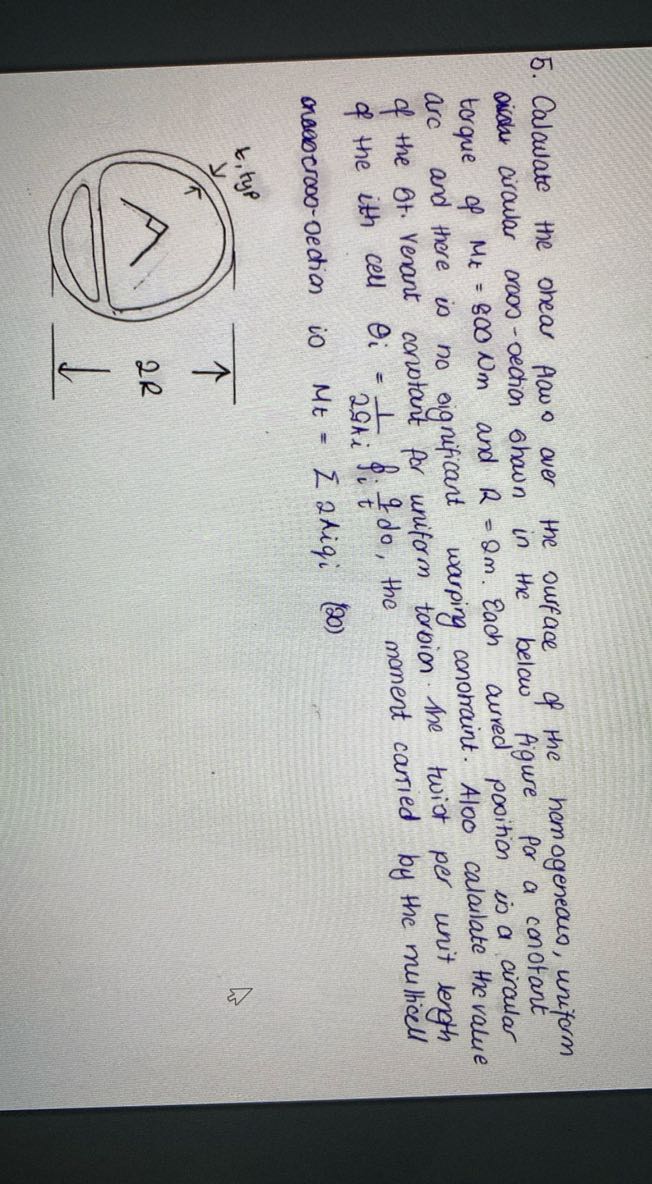 5. Calculate the shear flows over the surface of the homogeneous, uniform
circular cross-section shown in the below figure for a constant
torque of Mt = 800 Nm and R = 2m. Each curved position is a circular
arc and there is no significant warping constraint. Also calculate the value
of the St. Venant constant for uniform torsion. The twist per unit length
of the ith cell θi = 1/2GAi ∮i q/t ds, the moment carried by the multicell
cross-section is Mt = Σ 2Aiqi (20)
t, typ
2R